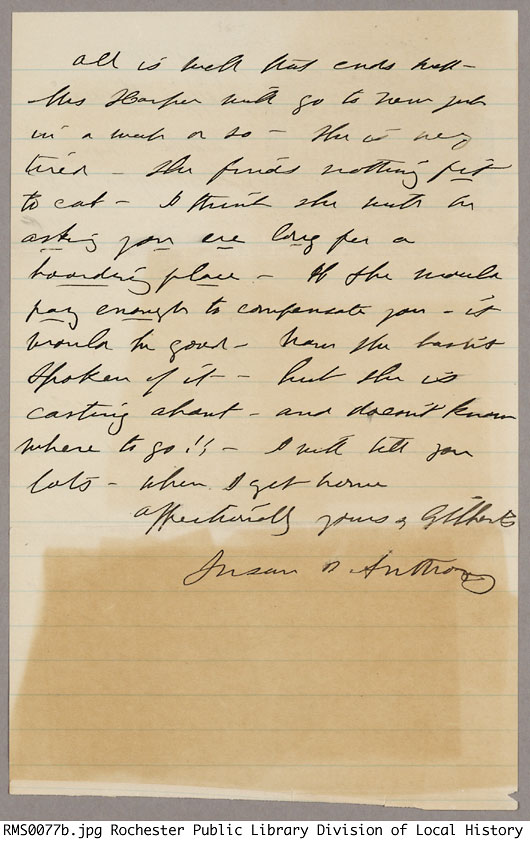 all is well that ends well -
Mrs Harper will go to New York
in a week or so - she is very
tired - she finds nothing fit
to eat - I think she will be
asking you ere long for a
boarding place - If she would
pay enough to compensate you - it
would be good - now she hasn't
spoken of it - but she is
casting about - and doesn't know
where to go!! - I will tell you
lots - when I get home
Affectionately yours &
Susan B. Anthony
RMS0077b.jpg Rochester Public Library Division of Local History